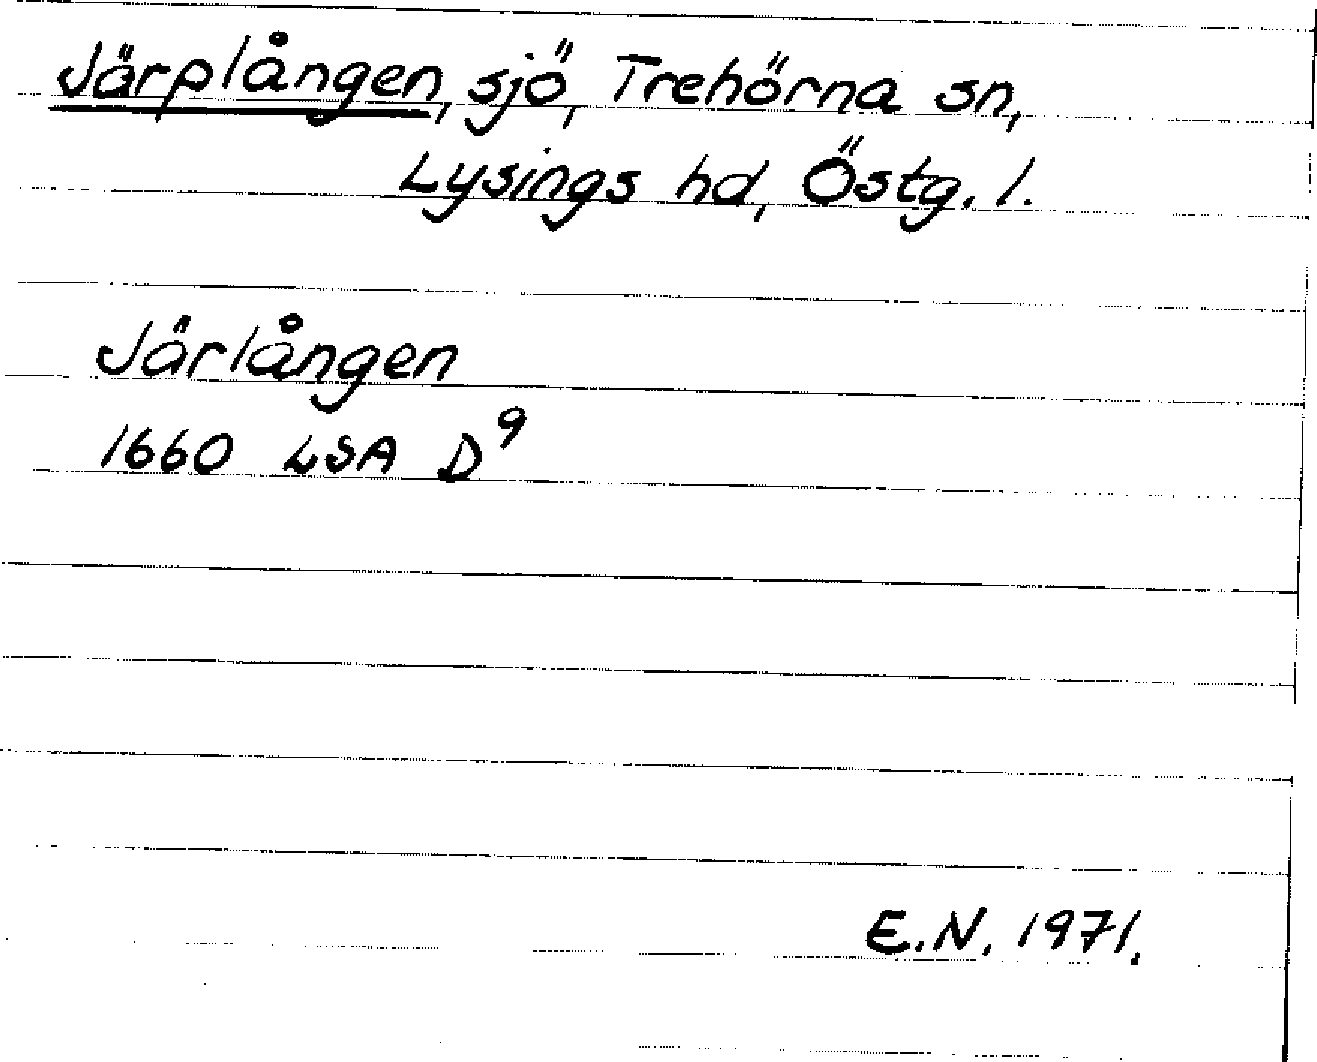 Järplången, sjö, Trehörna sn,
Lysings hd, Östg. l.
Järlången
1660 LSA D⁹
E.N. 1971.